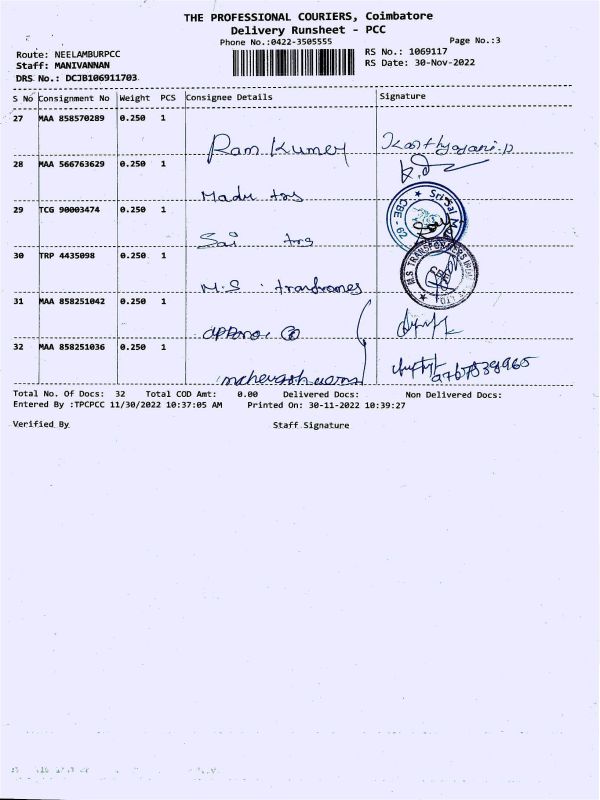 THE PROFESSIONAL COURIERS, Coimbatore
Delivery Runsheet - PCC
Phone No.:0422-3505555
Page No.:3
Route: NEELAMBURPCC
RS No.: 1069117
Staff: MANIVANNAN
RS Date: 30-Nov-2022
DRS No.: DCJB106911703
S No Consignment No Weight PCS Consignee Details Signature
27 MAA 858570289 0.250 1
Ram Kumer
28 MAA 566763629 0.250 1
Madu trs
29 TCG 90003474 0.250 1
Sri Sai
CBE - 62
Sai trs
30 TRP 4435098 0.250 1
M.S TRANSFORMERS
M.S :
31 MAA 858251042 0.250 1
32 MAA 858251036 0.250 1
Total No. Of Docs: 32 Total COD Amt: 0.00 Delivered Docs: Non Delivered Docs:
Entered By :TPCPCC 11/30/2022 10:37:05 AM Printed On: 30-11-2022 10:39:27
Verified By Staff Signature